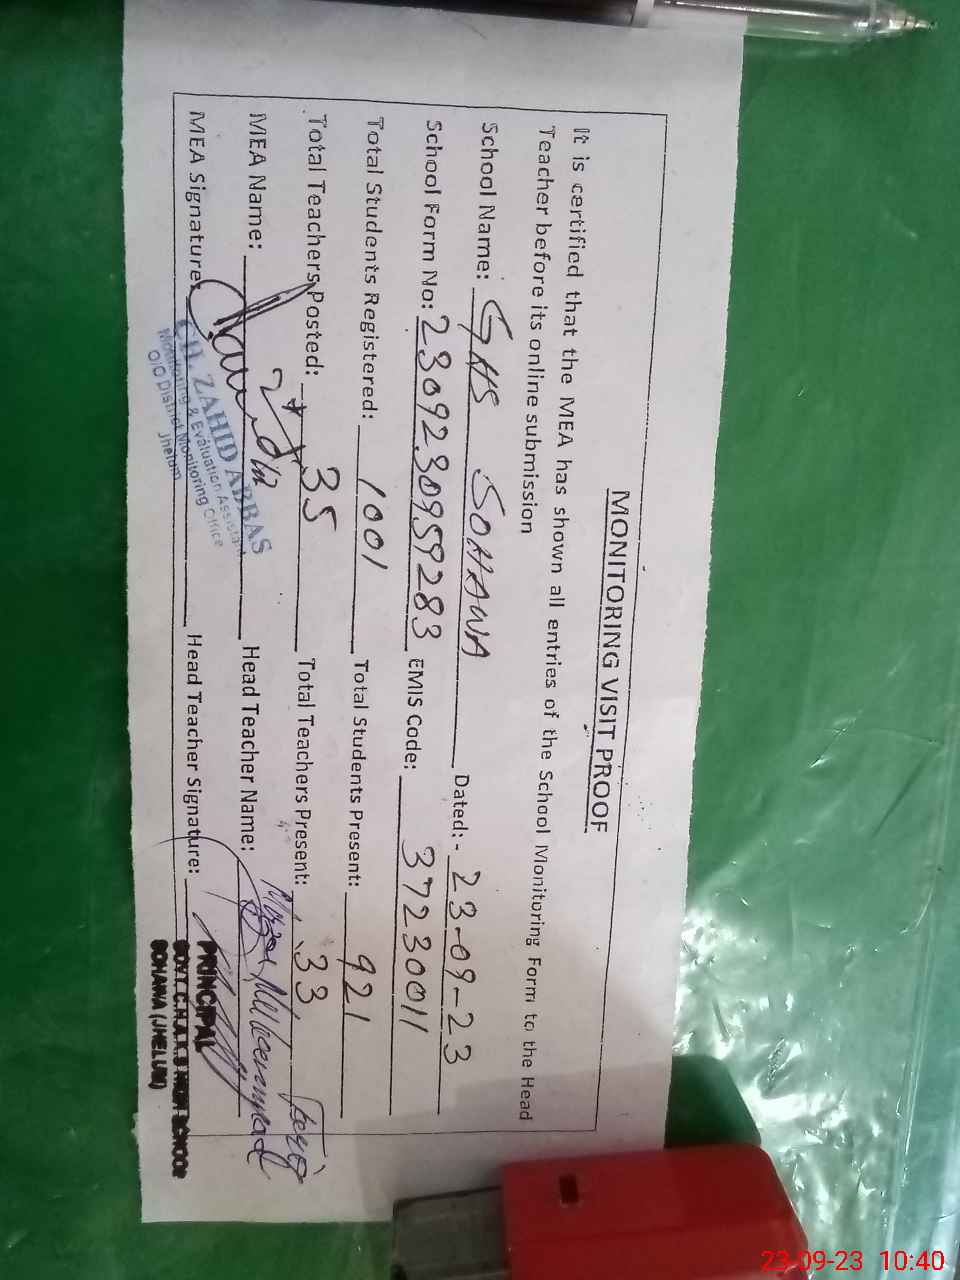 MONITORING VISIT PROOF
It is certified that the MEA has shown all entries of the School Monitoring Form to the Head
Teacher before its online submission
School Name: GHS SOHAWA Dated:- 23-09-23
School Form No: 2309230959283 EMIS Code: 37230011
Total Students Registered: 1001 Total Students Present: 921
Total Teachers Posted: 35 Total Teachers Present: 33
MEA Name: Head Teacher Name:
MEA Signature: Head Teacher Signature:
CH. ZAHID ABBAS
Monitoring & Evaluation Assistant
O/O District Monitoring Office
Jhelum
PRINCIPAL
GOVT. C.H.A.K.S HIGH SCHOOL
SOHAWA (JHELUM)
23-09-23 10:40